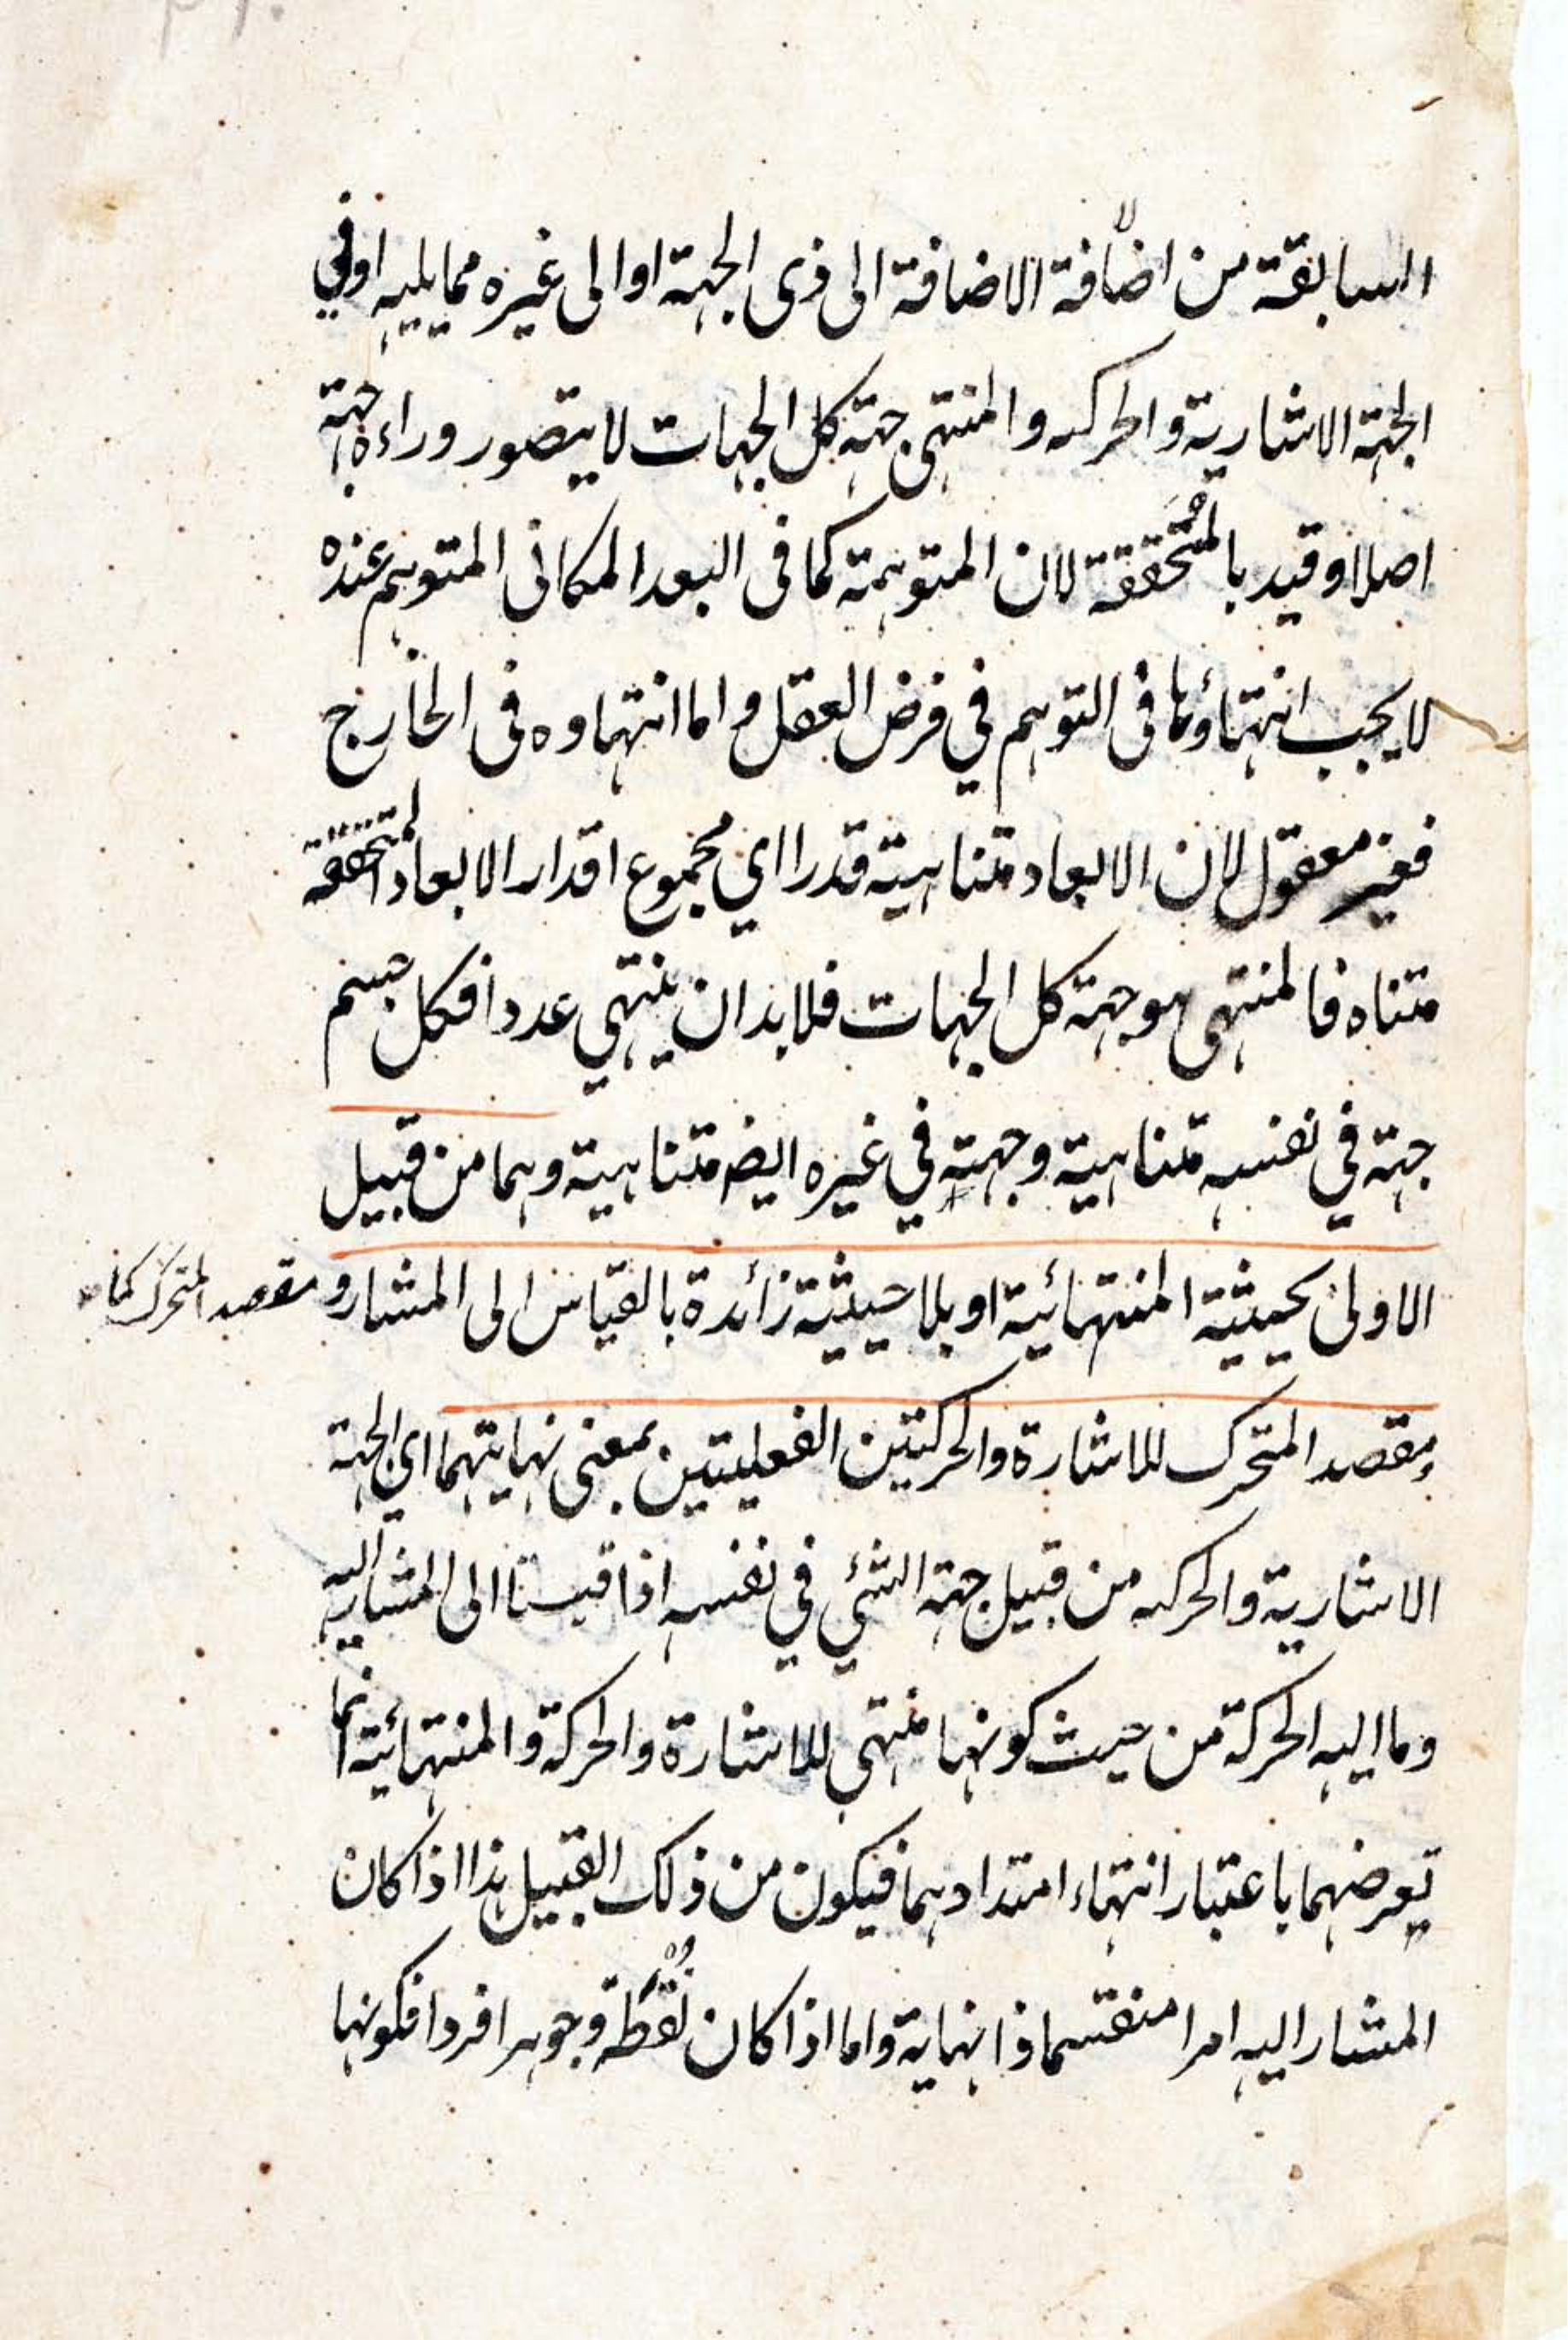 السابقة من اضافة الاضافة الى ذى الجهة او الى غيره مما يليه او في
الجهة الاشارية والحركه والمنتهى جهة كل الجهات لا يتصور وراءه جهة
اصلا وقيد بالمتحققة لان المتوهمة كما فى البعد المكانى المتوهم عنده
لا يجب انتهاؤها فى التوهم في فرض العقل واما انتهاوه فى الخارج
فغير معقول لان الابعاد متناهية قدرا اي مجموع اقدار الابعاد المتحققة
متناه فالمنتهى هو جهة كل الجهات فلا بد ان ينتهي عددا فكل جسم
جهة في نفسه متناهية وجهته في غيره ايضه متناهية وهما من قبيل
الاولى بحيثية المنتهائية او بلا حيثية زائدة بالقياس الى المشار و مقصد المتحرك كما
ومقصد المتحرك للاشارة والحركتين الفعليتين بمعنى نهايتهما اي الجهة
الاشارية والحركه من قبيل جهة الشئي في نفسه اذا قيستا الى المشار اليه
وما اليه الحركة من حيث كونها منتهى للاشارة والحركة والمنتهائية انما
تعرضهما باعتبار انتهاء امتدادهما فيكون من ذلك القبيل هذا اذا كان
المشار اليه امرا منقسما ذا نهاية واما اذا كان نقطة وجوهرا فردا فكونها